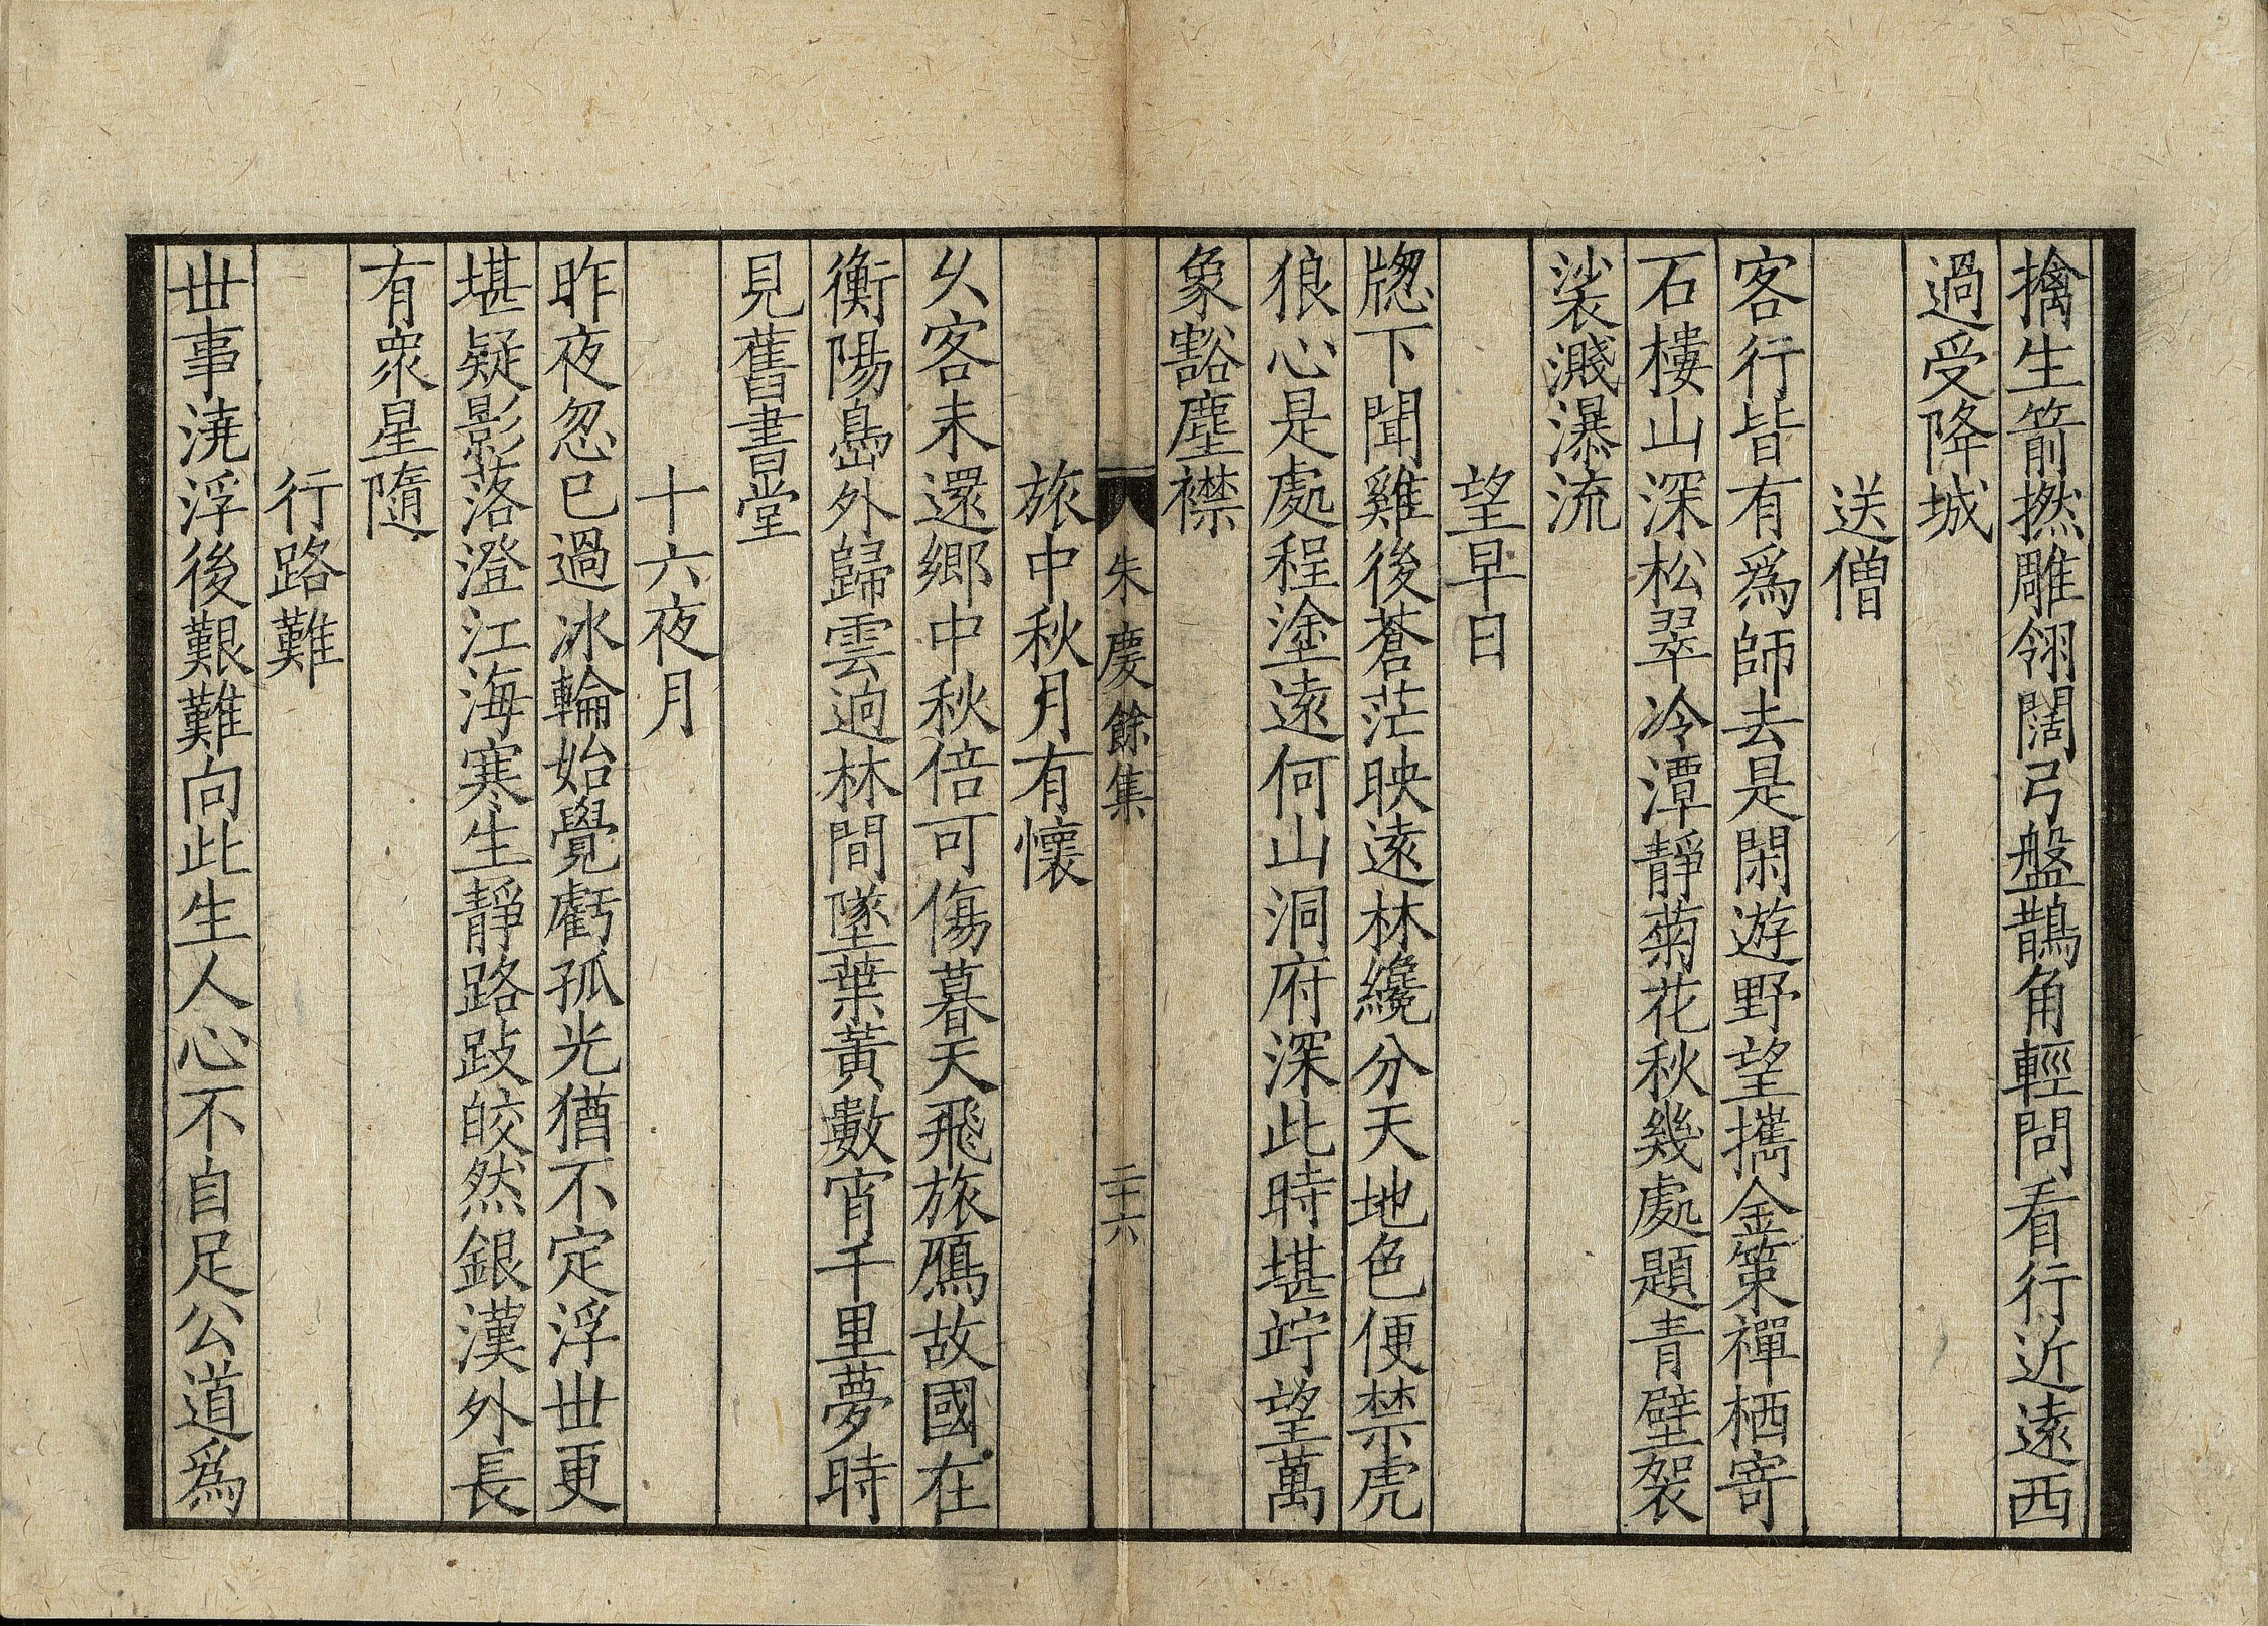 擒生箭撚雕翎闊弓盤鵲角輕問看行近遠西
過受降城
送僧
客行皆有爲師去是閑遊野望攜金策禪栖寄
石樓山深松翠冷潭靜菊花秋幾處題青壁袈
裟濺瀑流
望早日
牕下聞雞後蒼茫映遠林纔分天地色便禁虎
狼心是處程塗遠何山洞府深此時堪竚望萬
象豁塵襟
朱慶餘集
二十六
旅中秋月有懷
乆客未還鄉中秋倍可傷暮天飛旅鴈故國在
衡陽島外歸雲迥林間墜葉黃數宵千里夢時
見舊書堂
十六夜月
昨夜忽已過冰輪始覺虧孤光猶不定浮丗更
堪疑影落澄江海寒生靜路歧皎然銀漢外長
有衆星隨
行路難
丗事澆浮後艱難向此生人心不自足公道爲